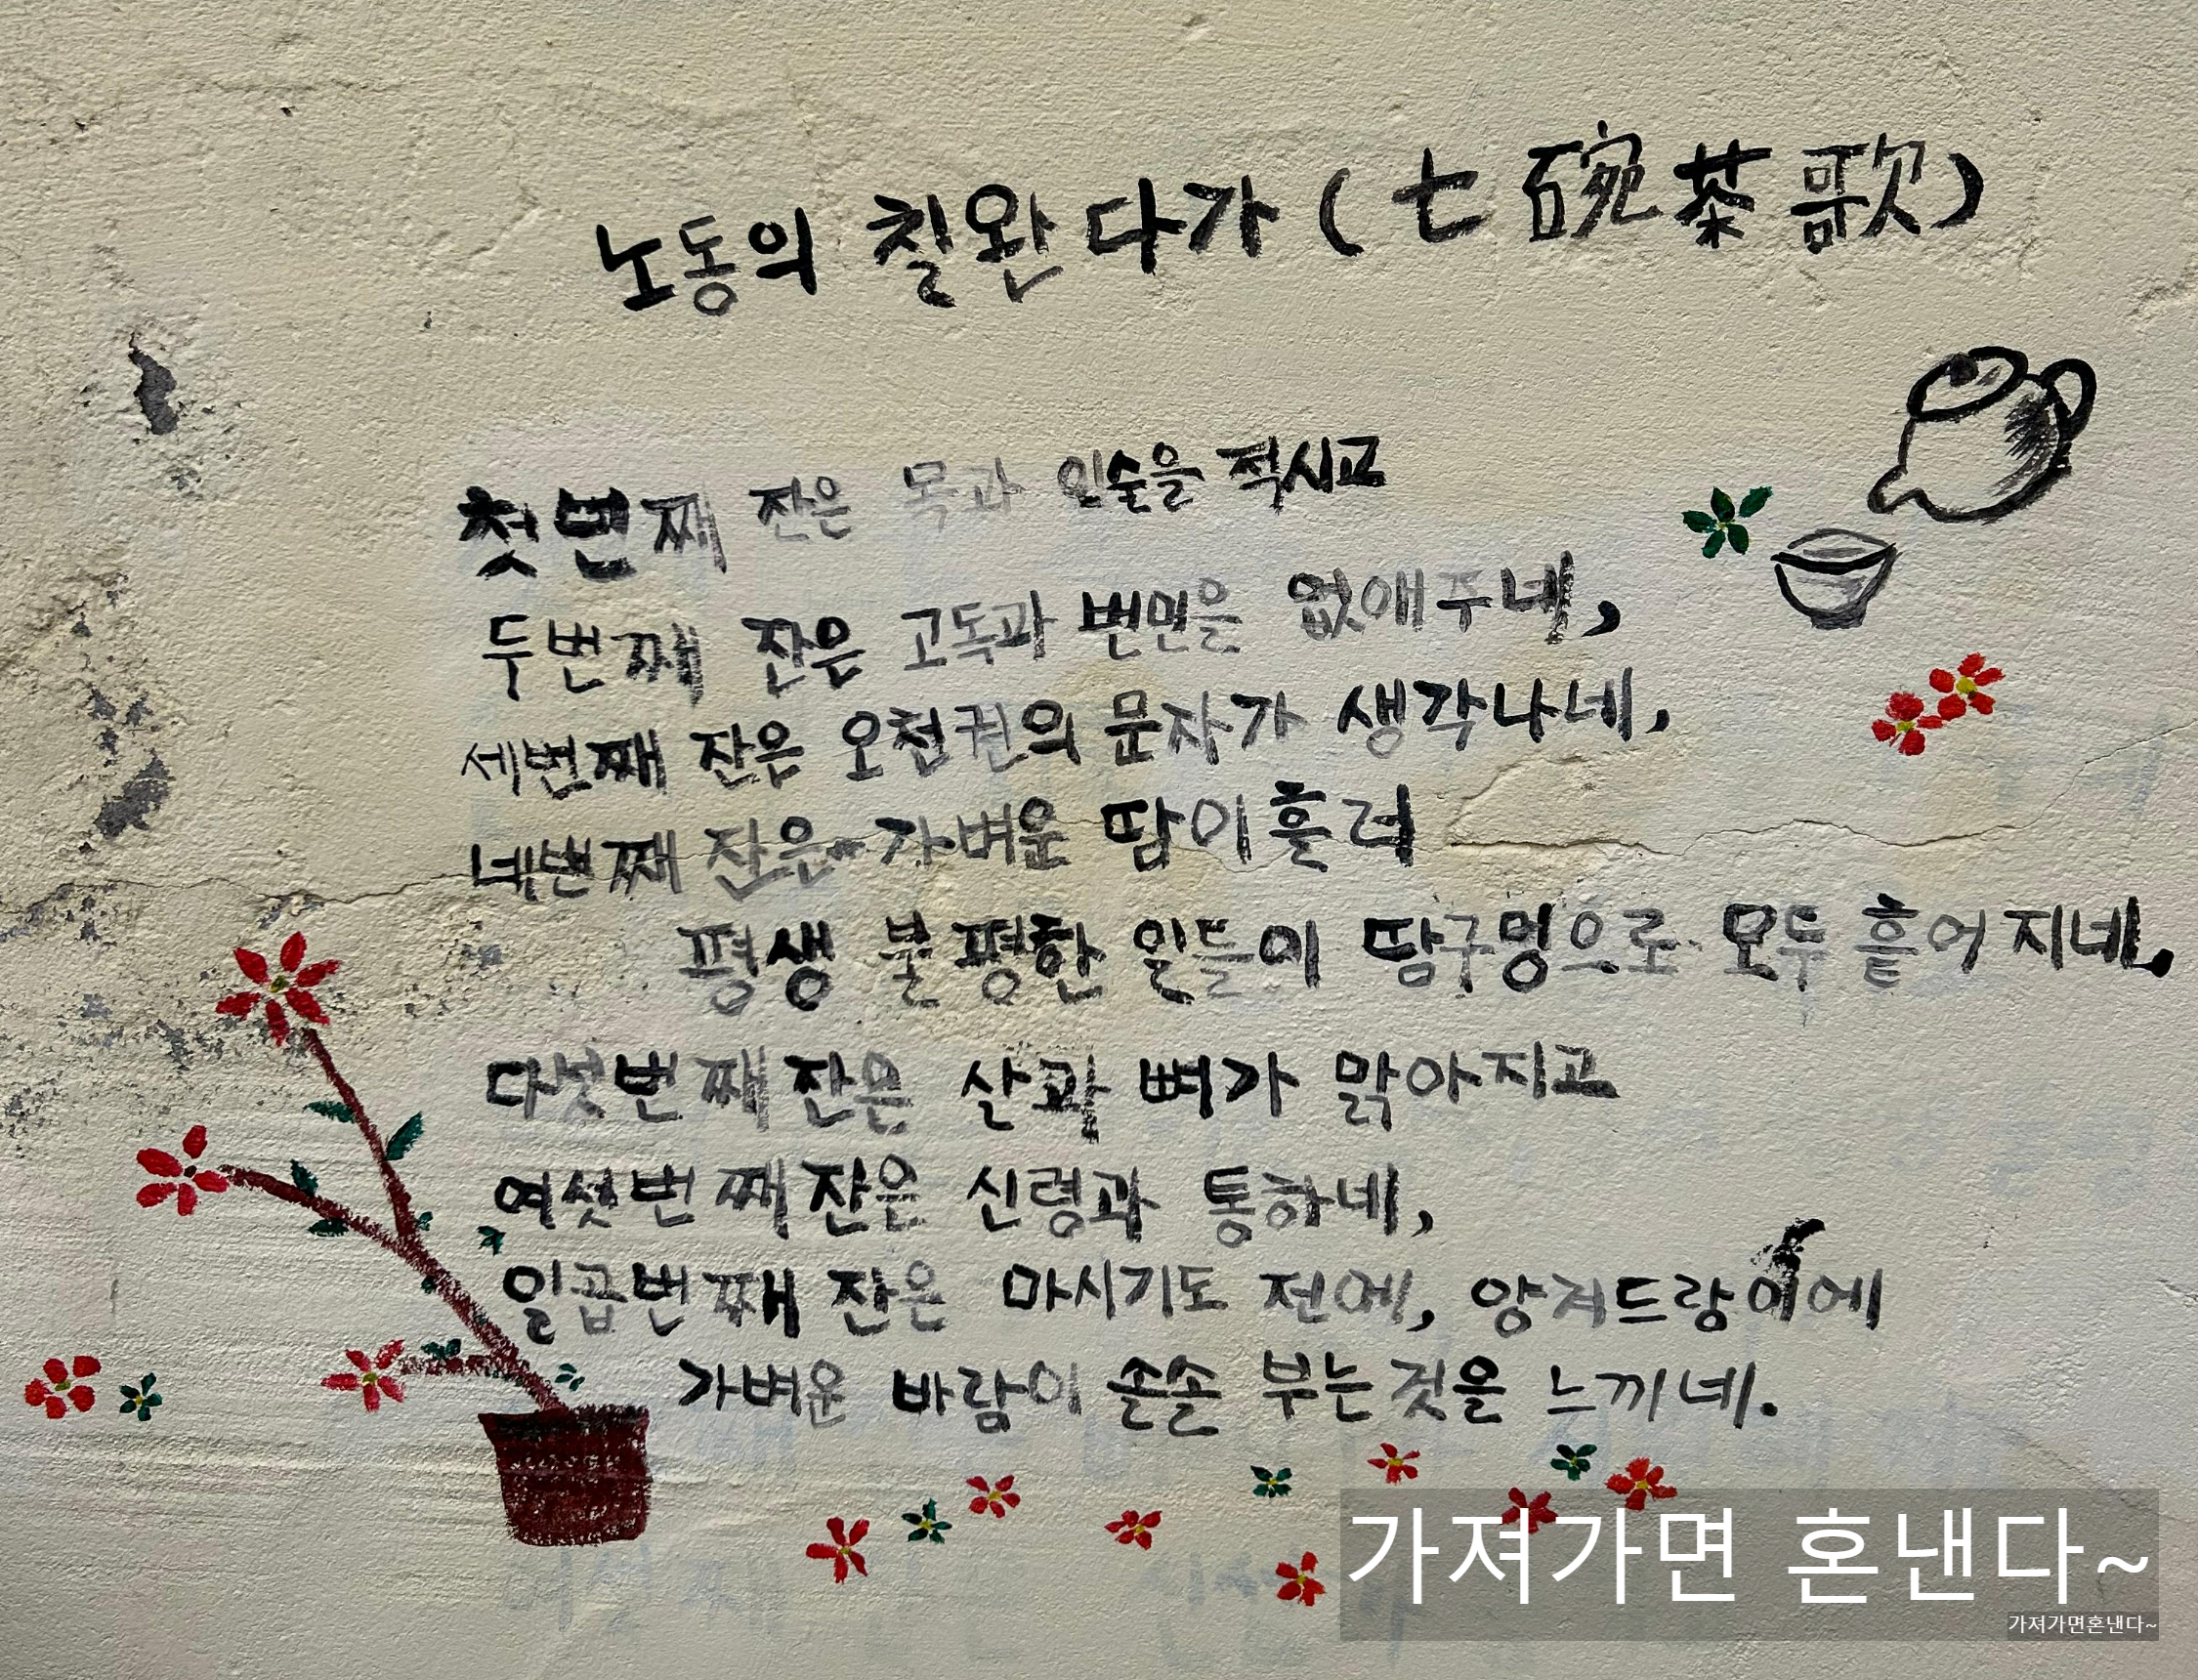 노동의 칠완다가 (七碗茶歌)
첫번째 잔은 목과 입술을 적시고
두번째 잔은 고독과 번민을 없애주네,
세번째 잔은 오천권의 문자가 생각나네,
네번째 잔은 가벼운 땀이흘러
평생 불평한 일들이 땀구멍으로 모두 흩어지네,
다섯번째 잔은 살과 뼈가 맑아지고
여섯번째 잔은 신령과 통하네,
일곱번째 잔은 마시기도 전에, 양겨드랑이에
가벼운 바람이 솔솔 부는것을 느끼네.
가져가면 혼낸다~
가져가면혼낸다~